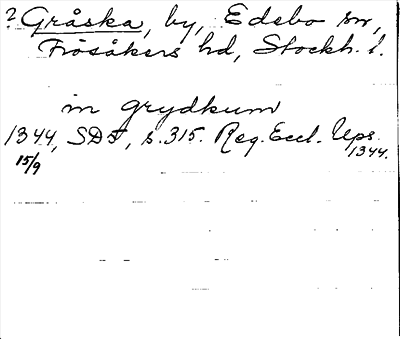 ? Gråska, by, Edebo sn,
Frösåkers hd, Stockh. l.
in grydkum
1344, SDS, s. 315. Reg. Eccl. Ups.
15/9 1344.